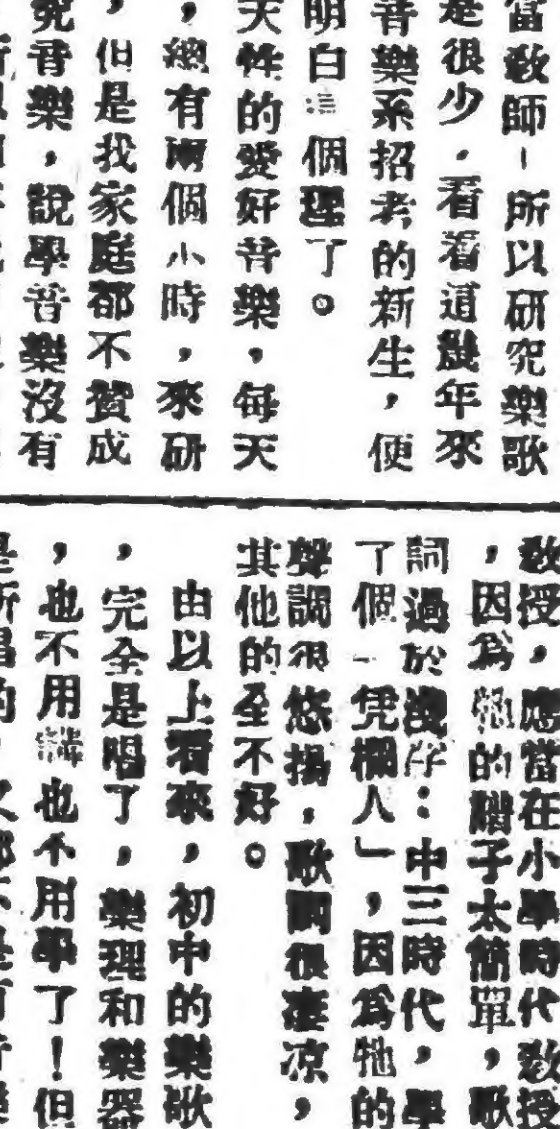 當敎師－所以研究樂歌
是很少．看看這幾年來
音樂系招考的新生，便
明白這個理了。
天性的愛好音樂，每天
，總有兩個小時，來研
，但是我家庭都不贊成
究音樂，說學音樂沒有
敎授，應當在小學時代敎授
，因爲牠的譜子太簡單，歌
詞過於淺浮：中三時代，學
了個「凭欄人」，因爲牠的
聲調很悠揚，歌調很凄凉，
其他的全不好。
由以上看來，初中的樂歌
，完全是唱了，樂理和樂器
，也不用講也不用學了！但
是所唱的